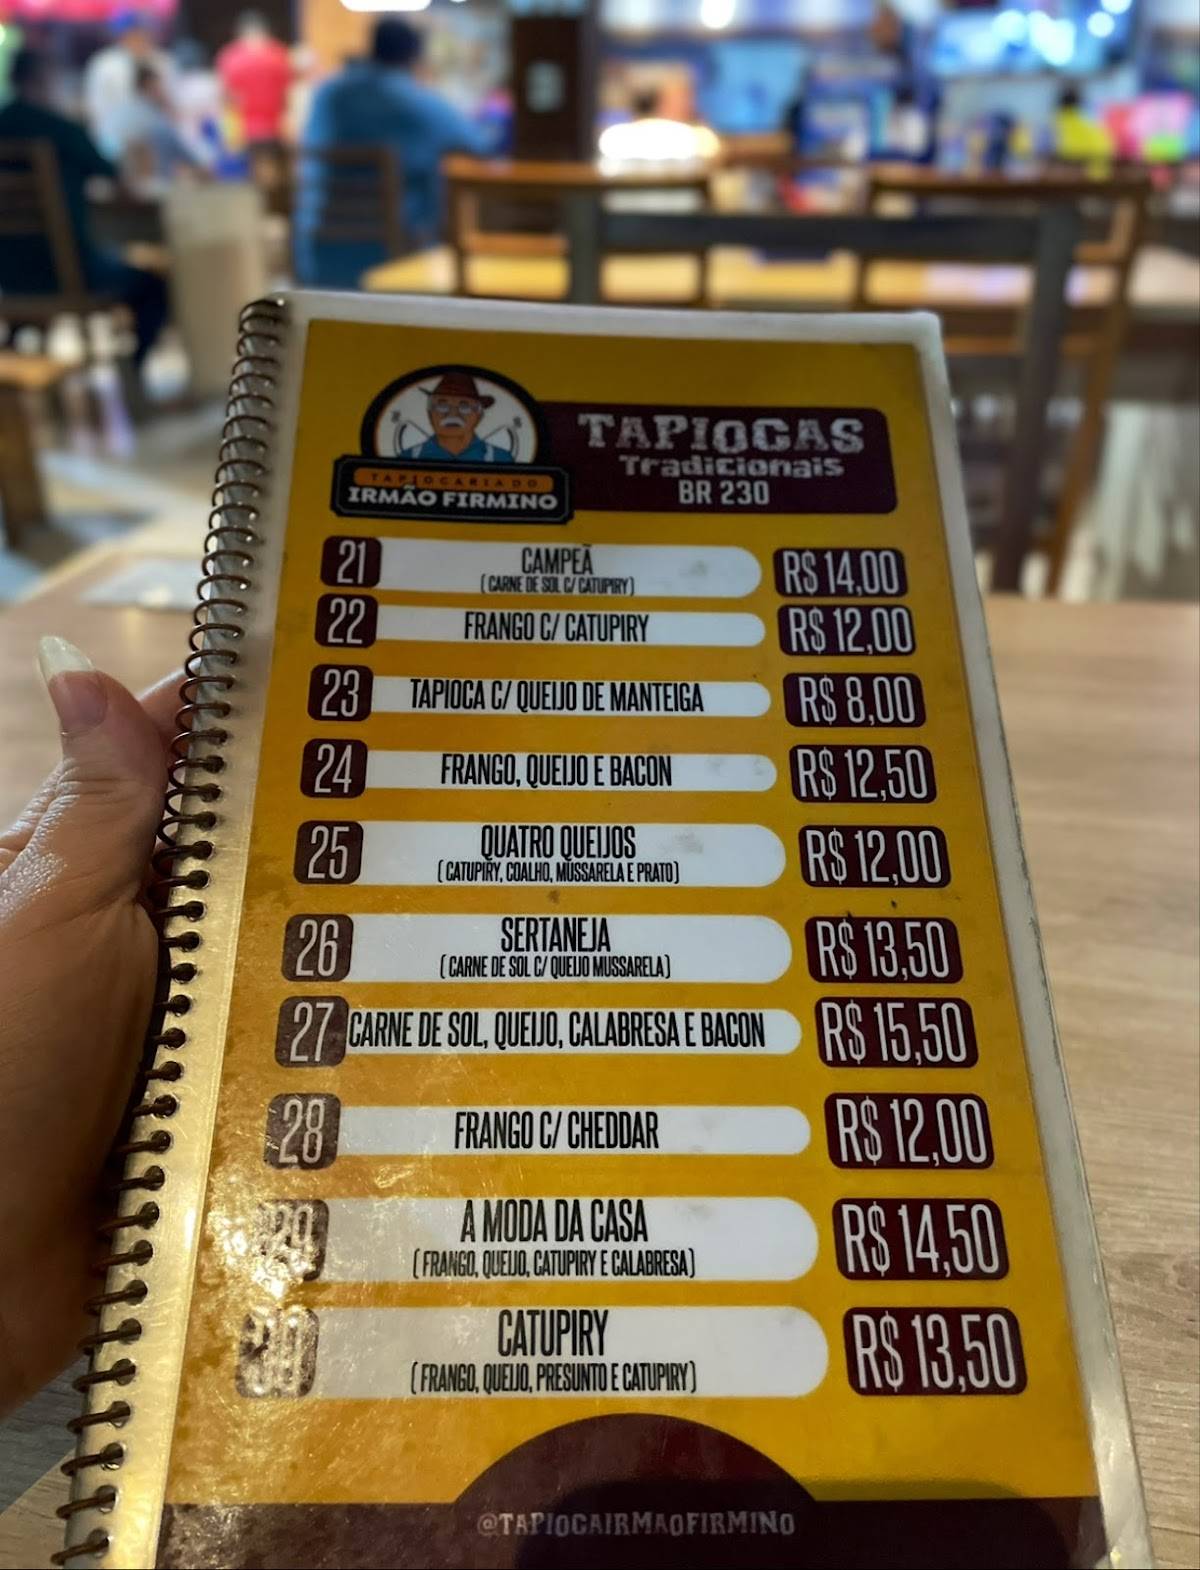 TAPIOCARIA DO
IRMÃO FIRMINO
TAPIOCAS
Tradicionais
BR 230
21 CAMPEÃ R$ 14,00
( CARNE DE SOL C/ CATUPIRY)
22 FRANGO C/ CATUPIRY R$ 12,00
23 TAPIOCA C/ QUEIJO DE MANTEIGA R$ 8,00
24 FRANGO, QUEIJO E BACON R$ 12,50
25 QUATRO QUEIJOS R$ 12,00
( CATUPIRY, COALHO, MUSSARELA E PRATO)
26 SERTANEJA R$ 13,50
( CARNE DE SOL C/ QUEIJO MUSSARELA)
27 CARNE DE SOL, QUEIJO, CALABRESA E BACON R$ 15,50
28 FRANGO C/ CHEDDAR R$ 12,00
29 A MODA DA CASA R$ 14,50
( FRANGO, QUEIJO, CATUPIRY E CALABRESA)
30 CATUPIRY R$ 13,50
( FRANGO, QUEIJO, PRESUNTO E CATUPIRY)
@TAPIOCAIRMAOFIRMINO